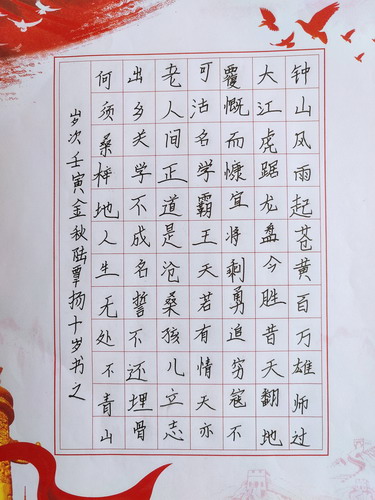 钟山风雨起苍黄百万雄师过
大江虎踞龙盘今胜昔天翻地
覆慨而慷宜将剩勇追穷寇不
可沽名学霸王天若有情天亦
老人间正道是沧桑孩儿立志
出乡关学不成名誓不还埋骨
何须桑梓地人生无处不青山
岁次壬寅金秋陆扬十岁书之